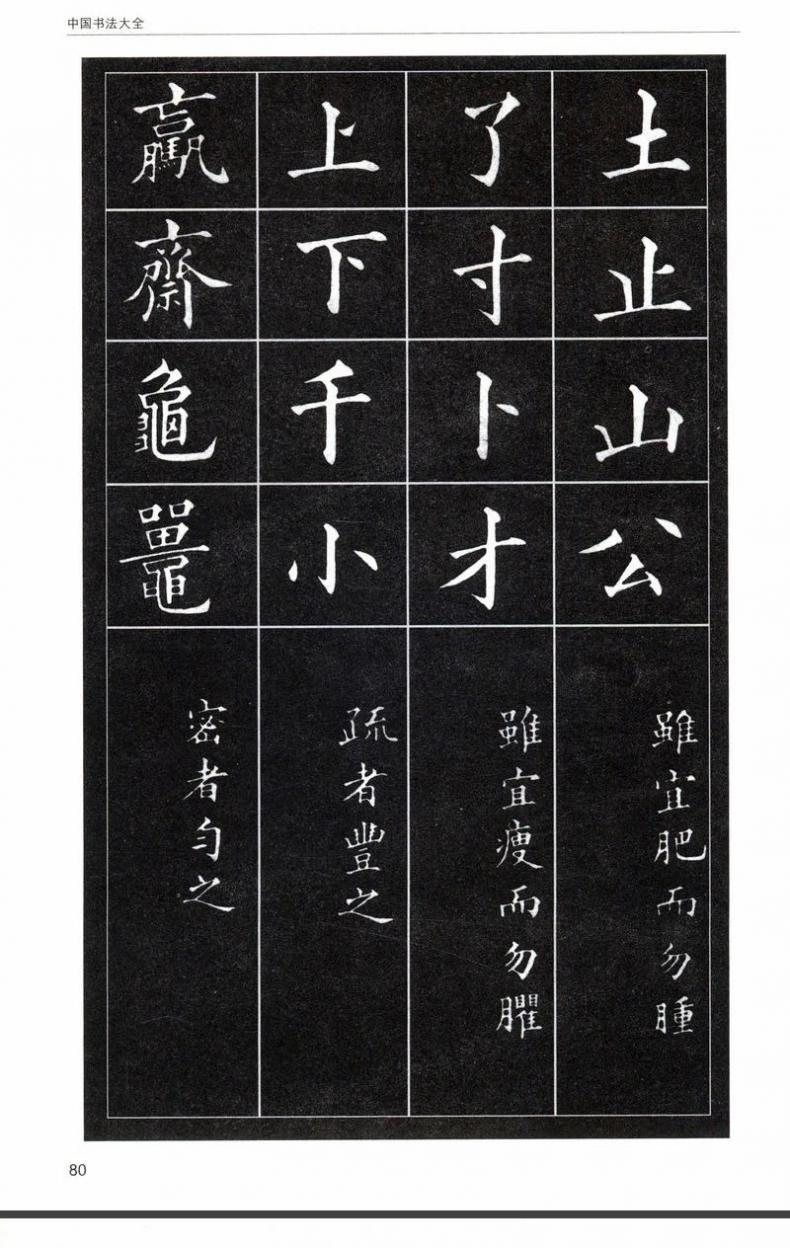 中国书法大全
土止山公
雖宜肥而勿腫
了寸卜才
雖宜瘦而勿臞
上下千小
疏者豐之
驘齋龜鼉
密者勻之
80